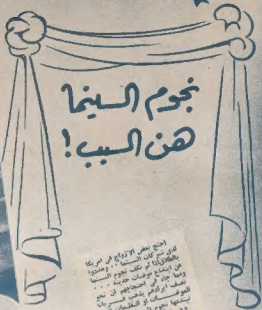 نجوم السينما
هن السبب!
احتج بعض الازواج في امريكا
لدى شركات السينما .. وهددوا
بالطلاق اذا لم تكف نجوم السينما
عن ابتداع موضات حديثة ...
ومما جاء في احتجاجهم ان نحو
نصف ايرادهم يذهب